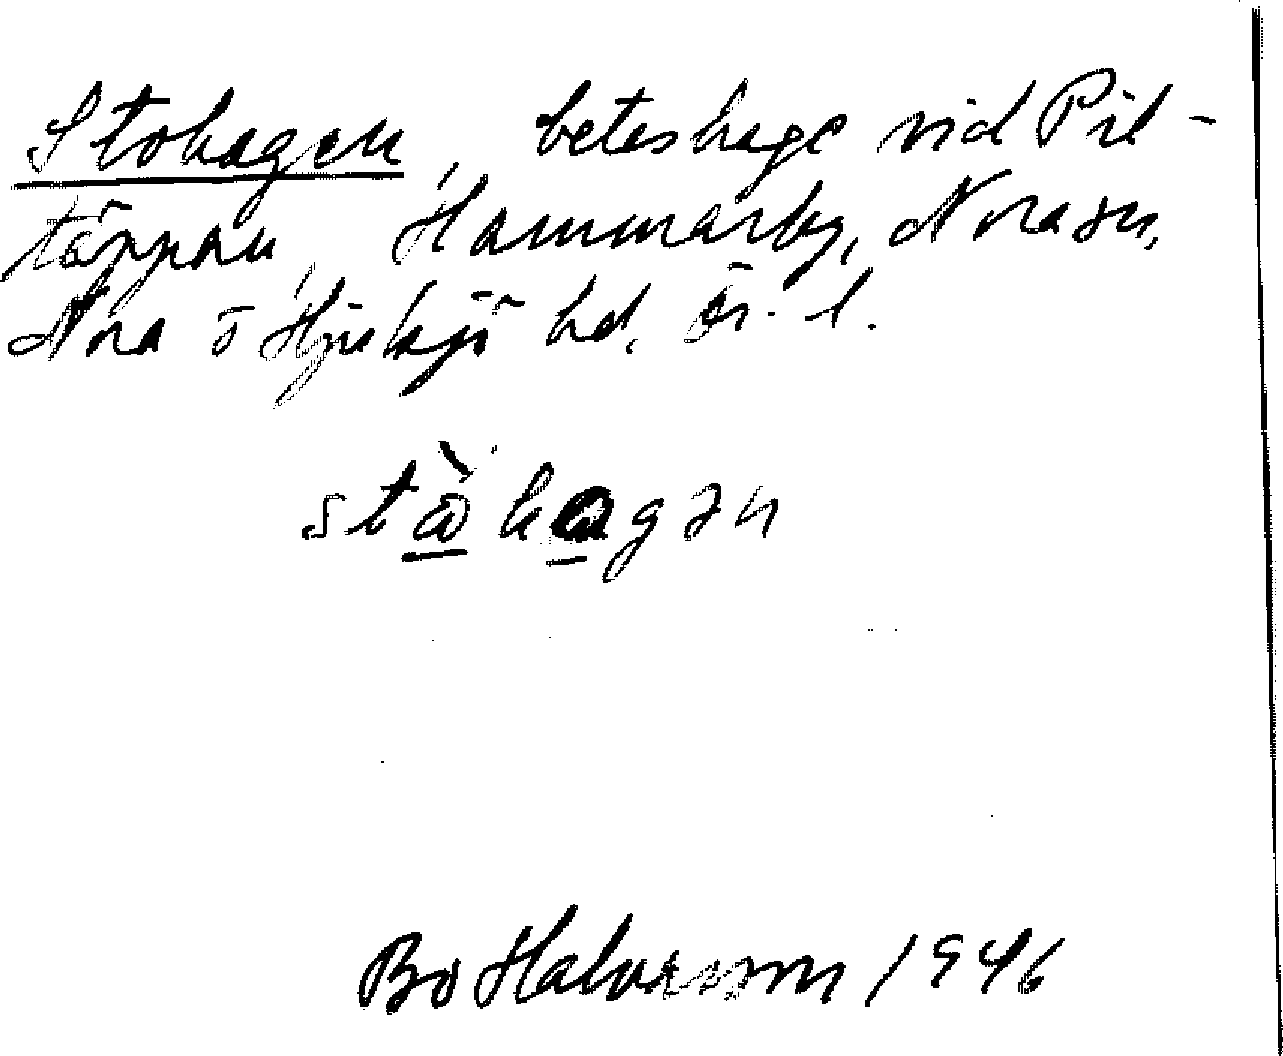 Stohagen, beteshage vid Pil-
täppan, Hammarby, Nora sn,
Nora o Hjulsjö hd, Ör. l.
stɷ̀hɑgən
Bo Halvarsson 1946